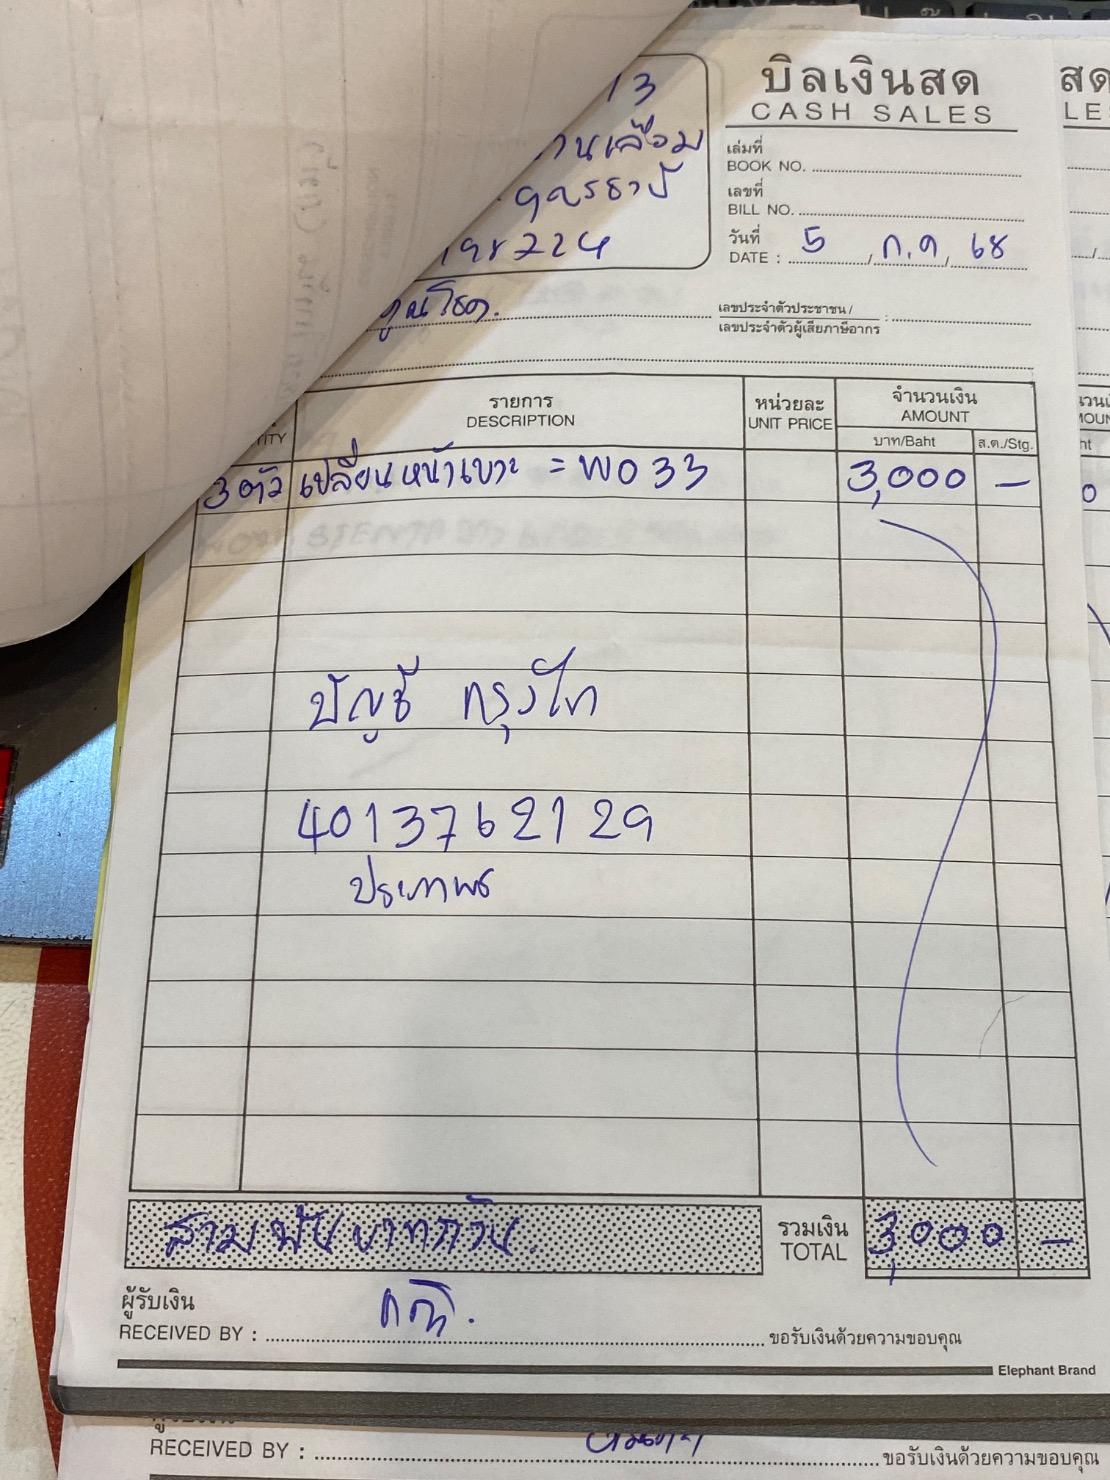 บิลเงินสด
CASH SALES
13
านเลื่อม
อุดรธานี
98224
เล่มที่
BOOK NO.
เลขที่
BILL NO.
วันที่
DATE : 5 / ก.ค / 68
เลขประจำตัวประชาชน /
เลขประจำตัวผู้เสียภาษีอากร :
รายการ
DESCRIPTION
หน่วยละ
UNIT PRICE
จำนวนเงิน
AMOUNT
บาท/Baht ส.ต./Stg.
3 ตัว เปลี่ยนหน้าเบาะ = W033 3,000 —
บัญชี กรุงไท
4013762129
ประภาพร
สามพันบาทถ้วน.
รวมเงิน
TOTAL
3,000 —
ผู้รับเงิน
RECEIVED BY :
ขอรับเงินด้วยความขอบคุณ
Elephant Brand
RECEIVED BY :
ขอรับเงินด้วยความขอบคุณ